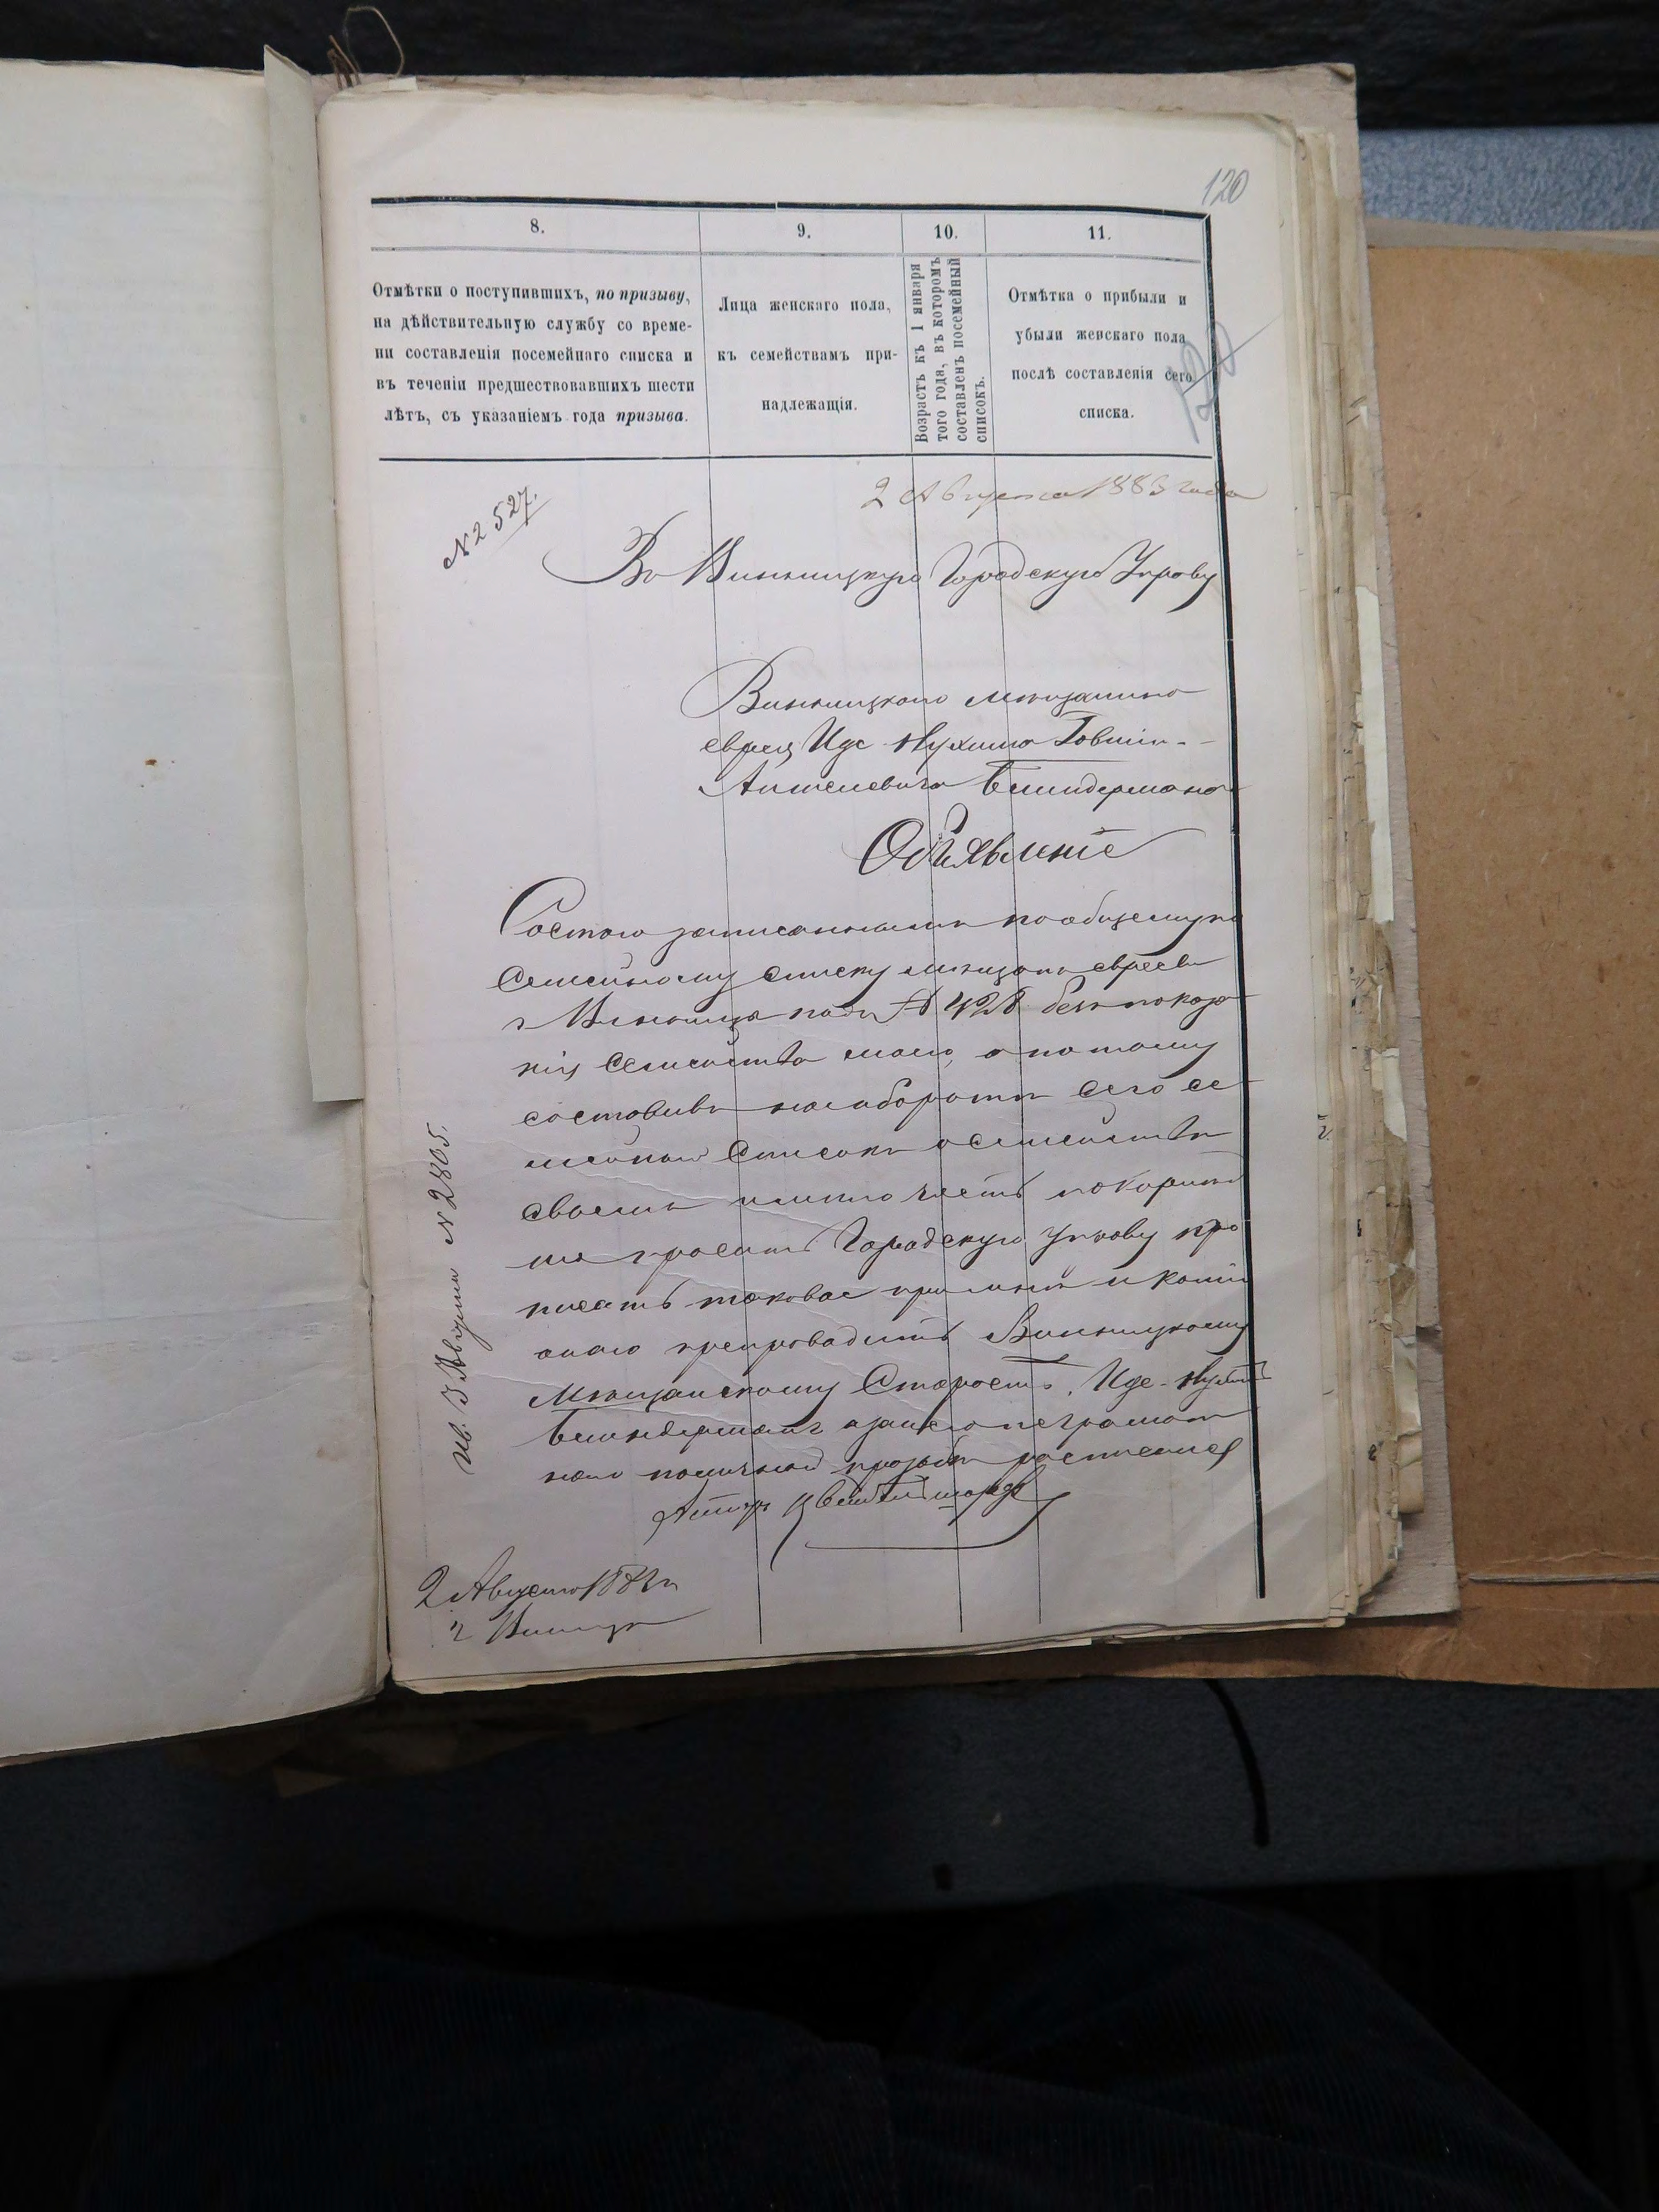 120
8.
9.
10.
11.
Отмѣтки о поступившихъ, по призыву,
на дѣйствительную службу со време-
ни составленія посемейнаго списка и
въ теченіи предшествовавшихъ шести
лѣтъ, съ указаніемъ года призыва.
Лица женскаго пола,
къ семействамъ при-
надлежащія.
Возрастъ къ 1 января
того года, въ которомъ
составленъ посемейный
списокъ.
Отмѣтка о прибыли и
убыли женскаго пола
послѣ составленія сего
списка.
2 Августа 1883 года
№ 2527.
Въ Винницкую Городскую Управу
Винницкаго мѣщанина
еврея Иде Нухима
Объявленіе
Состою записаннымъ по общему по
семейному списку мѣщанъ евреевъ
г Винница подъ № 428 безъ показа
нія семейства моего, а потому
составивъ наоборотъ сего се
мейный списокъ о семействѣ
своемъ имѣю честь покорнѣй
ше просить Городскую Управу про
писать таковое при мнѣ и копію
онаго препроводить Винницкому
Мѣщанскому Старостѣ. Иде-Нухим
а за него неграмот
наго по личной прозьбѣ росписался
Ис. 3 Августа № 2805.
2 Августа 1883 г
г Винница